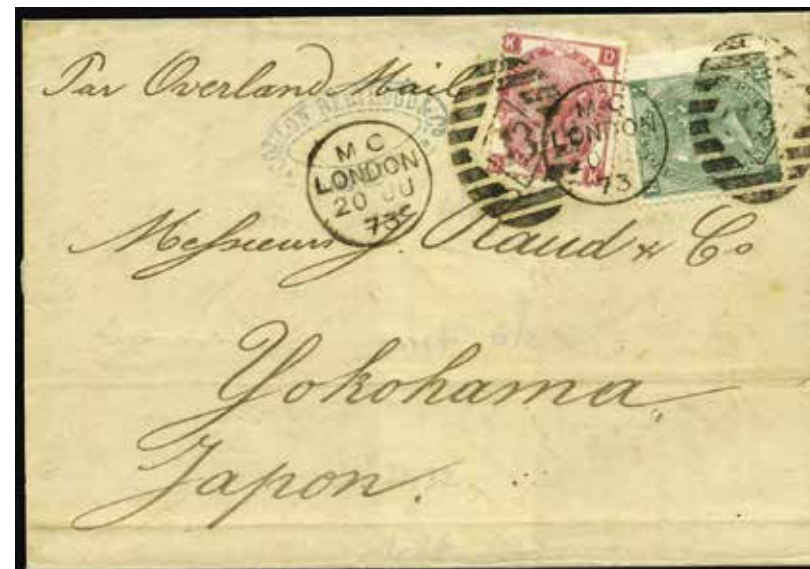 Par Overland Mail
M C
LONDON
20 JU
73
M C
LONDON
20
73
K D
K
Messieurs J. Raud & Co
Yokohama,
Japon.